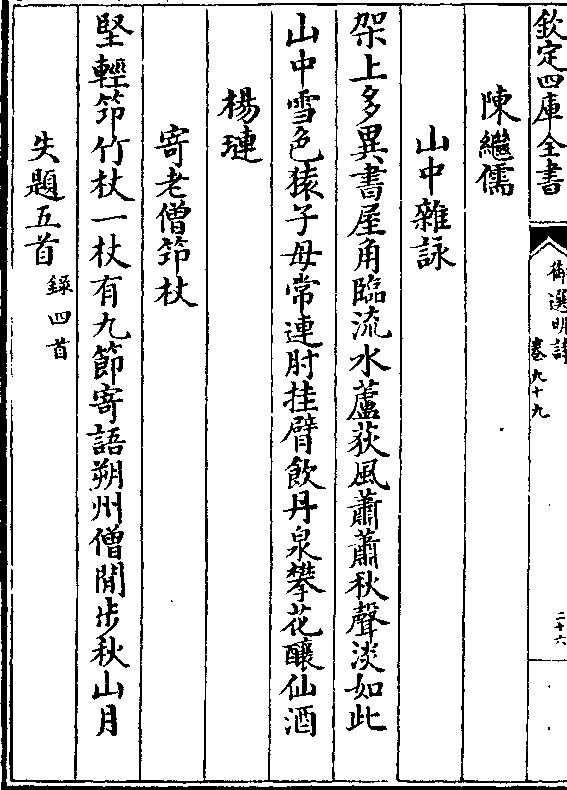 欽定四庫全書
御選明詩
卷九十九
二十六
陳繼儒
山中雜詠
架上多異書屋角臨流水蘆荻風蕭蕭秋聲淡如此
山中雪色猿子母常連肘挂臂飲丹泉攀花釀仙酒
楊璉
寄老僧笻杖
堅輕笻竹杖一杖有九節寄語朔州僧閒步秋山月
失題五首 錄四首